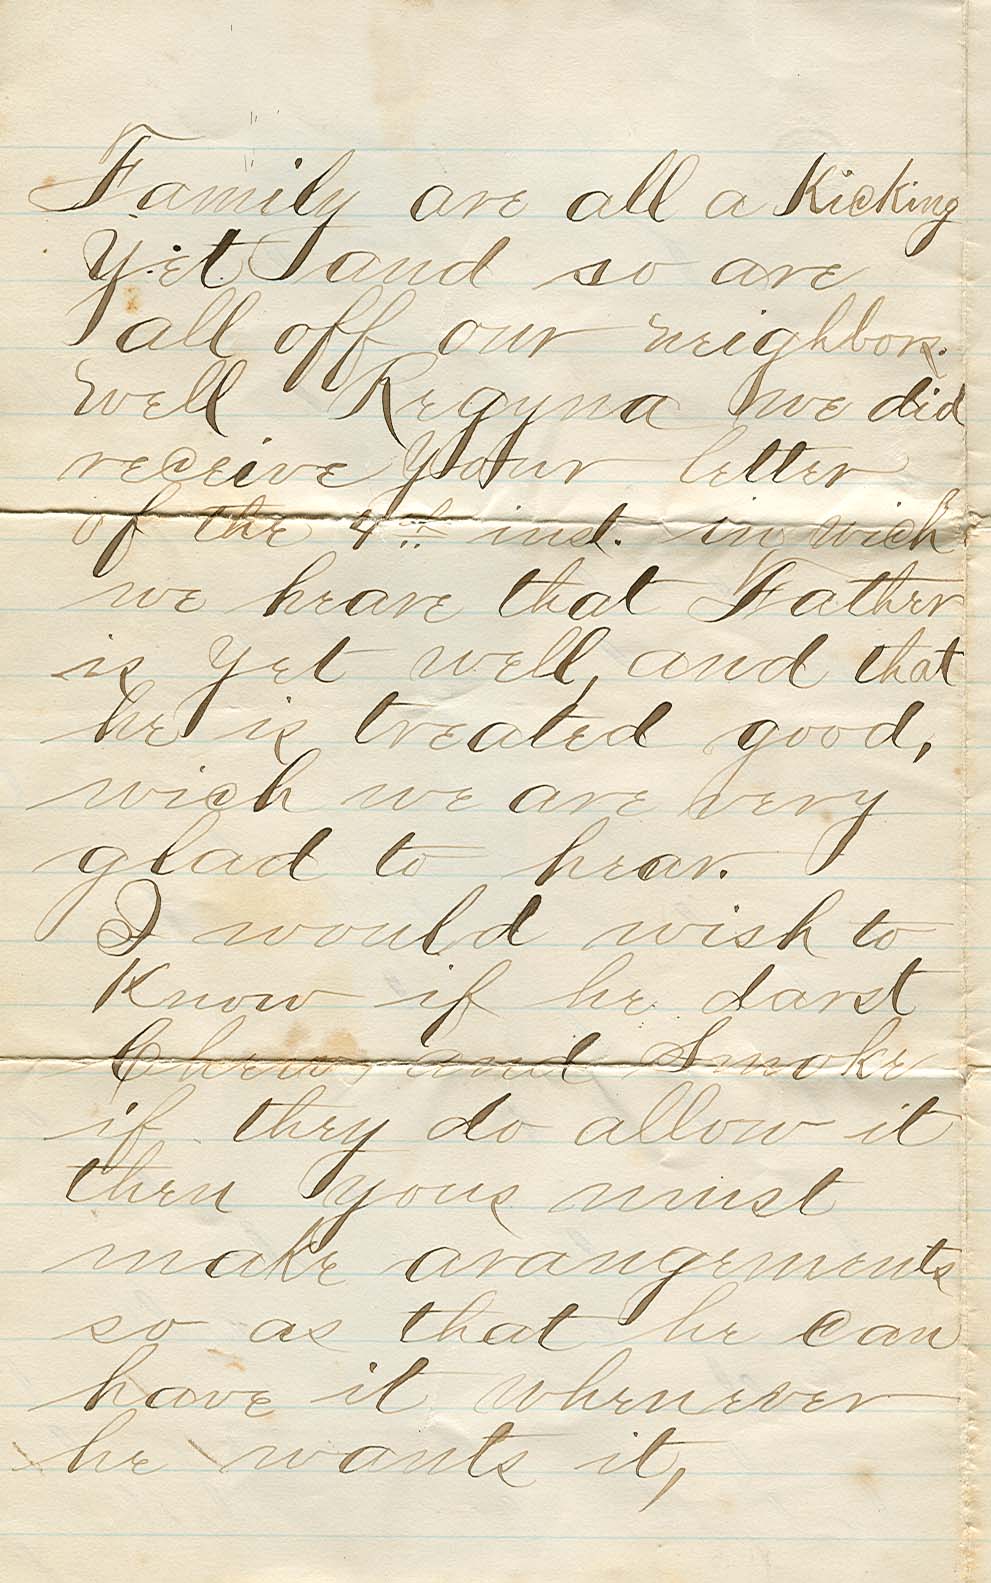 Family are all a Kicking
Yet and so are
all off our neighbors.
well Regyna we did
receive Your letter
of the 4th inst. in wich
we heare that Father
is Yet well, and that
he is treated good,
wich we are very
glad to hear.
I would wish to
Know if he darst
Chew and Smoke
if they do allow it
then yous must
make arangements
so as that he can
have it whenever
he wants it,